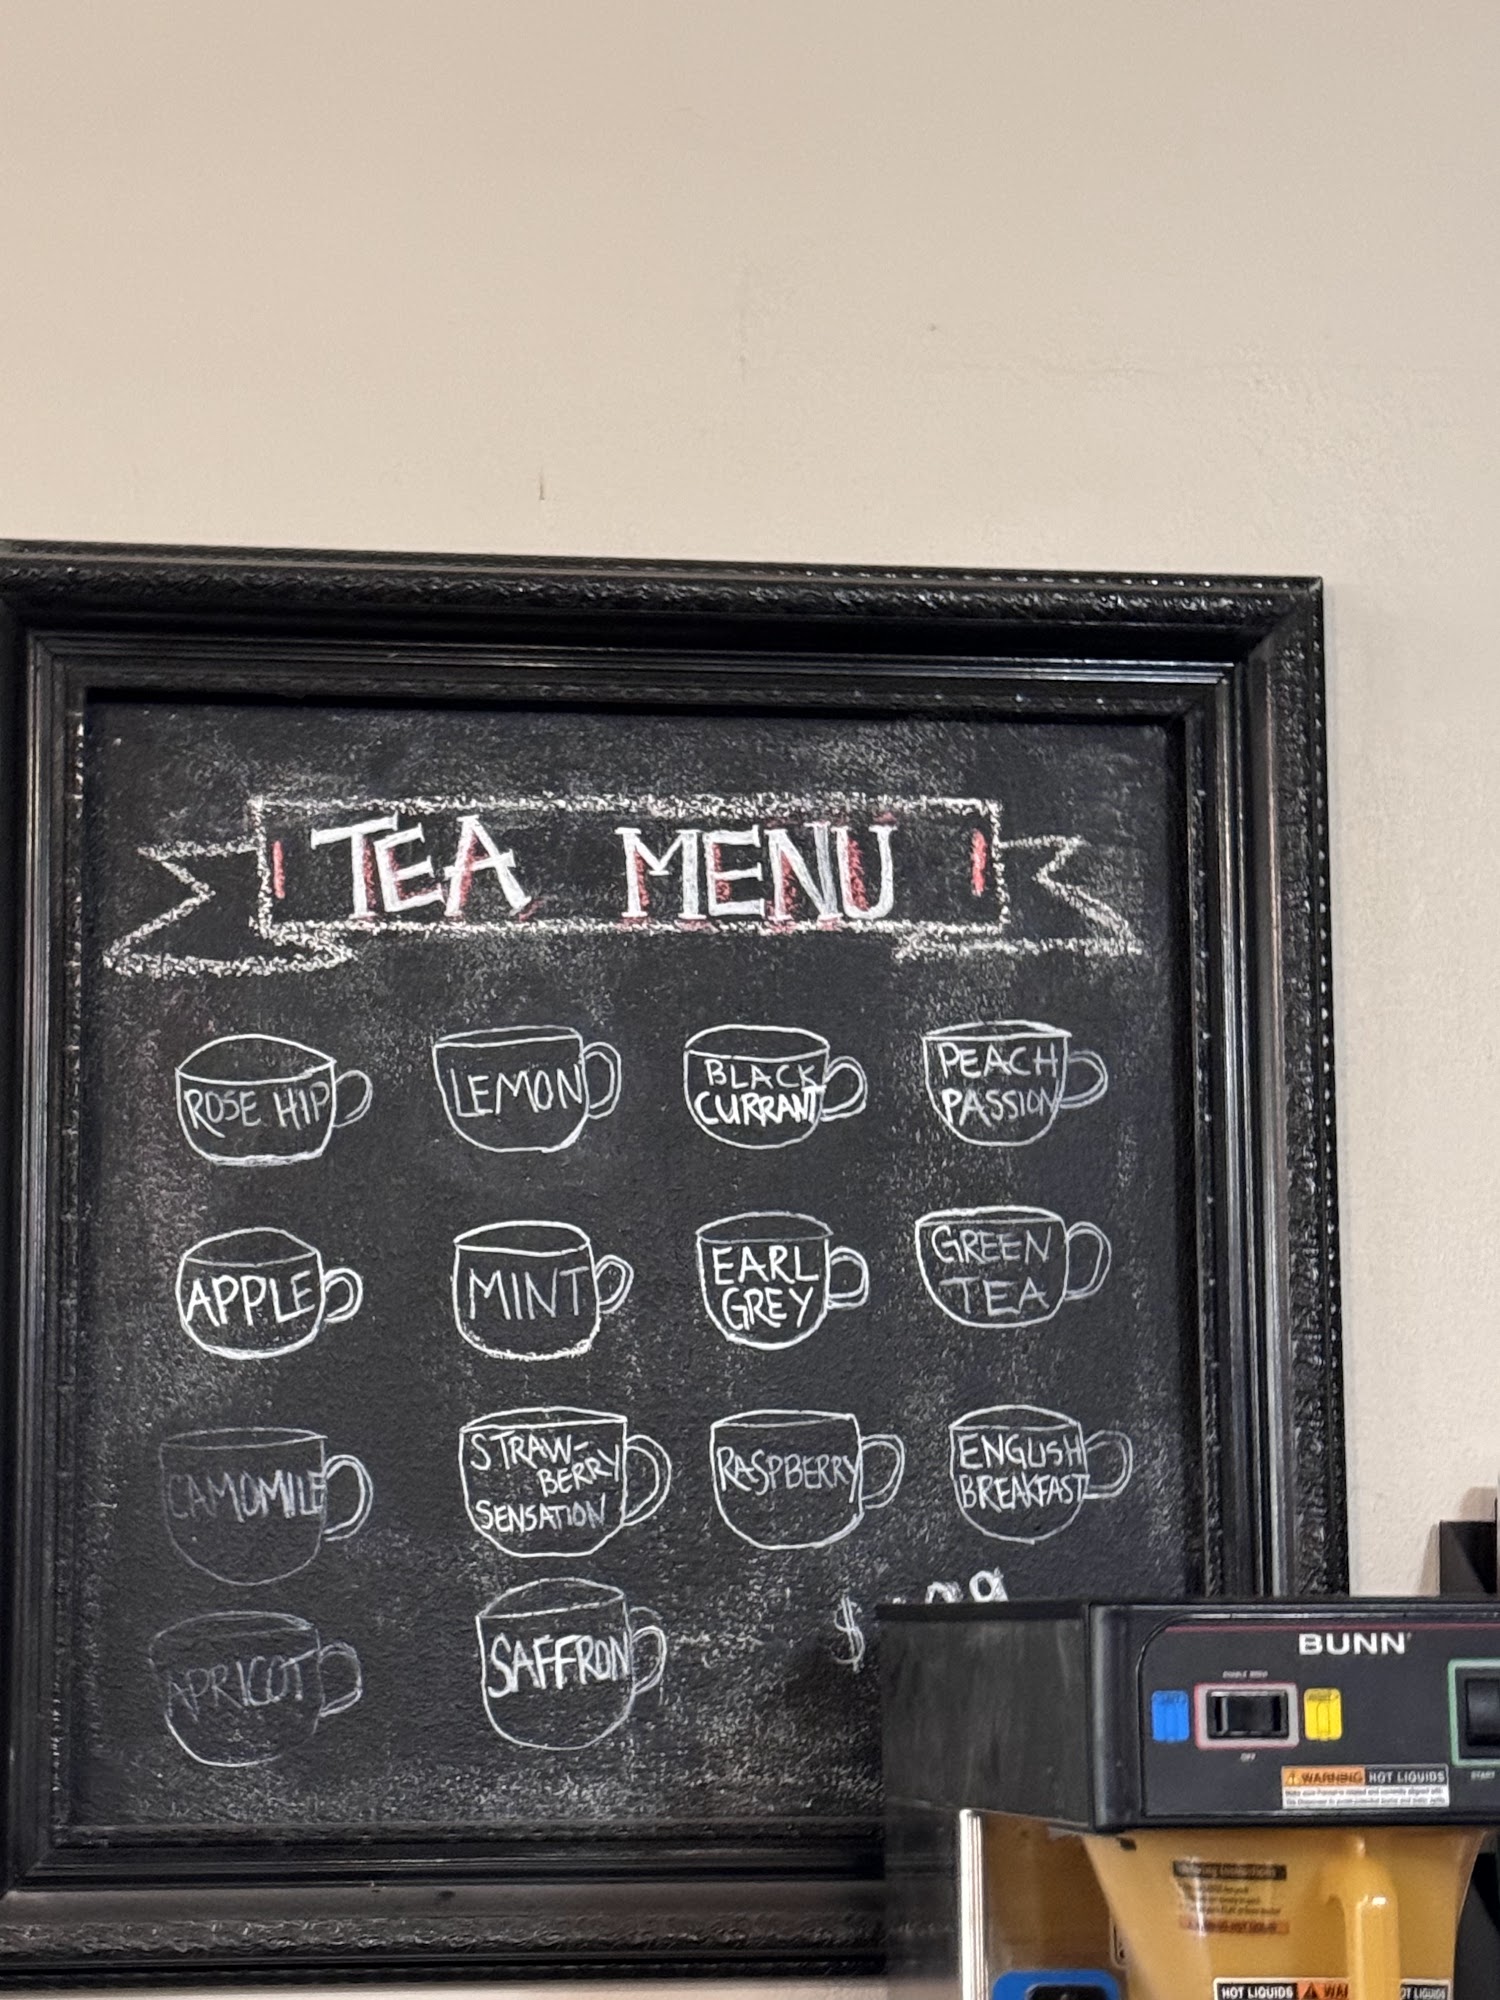 TEA MENU
ROSE HIP
LEMON
BLACK
CURRANT
PEACH
PASSION
APPLE
MINT
EARL
GREY
GREEN
TEA
CAMOMILE
STRAW-
BERRY
SENSATION
RASPBERRY
ENGLISH
BREAKFAST
APRICOT
SAFFRON
$
BUNN
OFF
START
WARNING HOT LIQUIDS
HOT LIQUIDS
HOT LIQUIDS